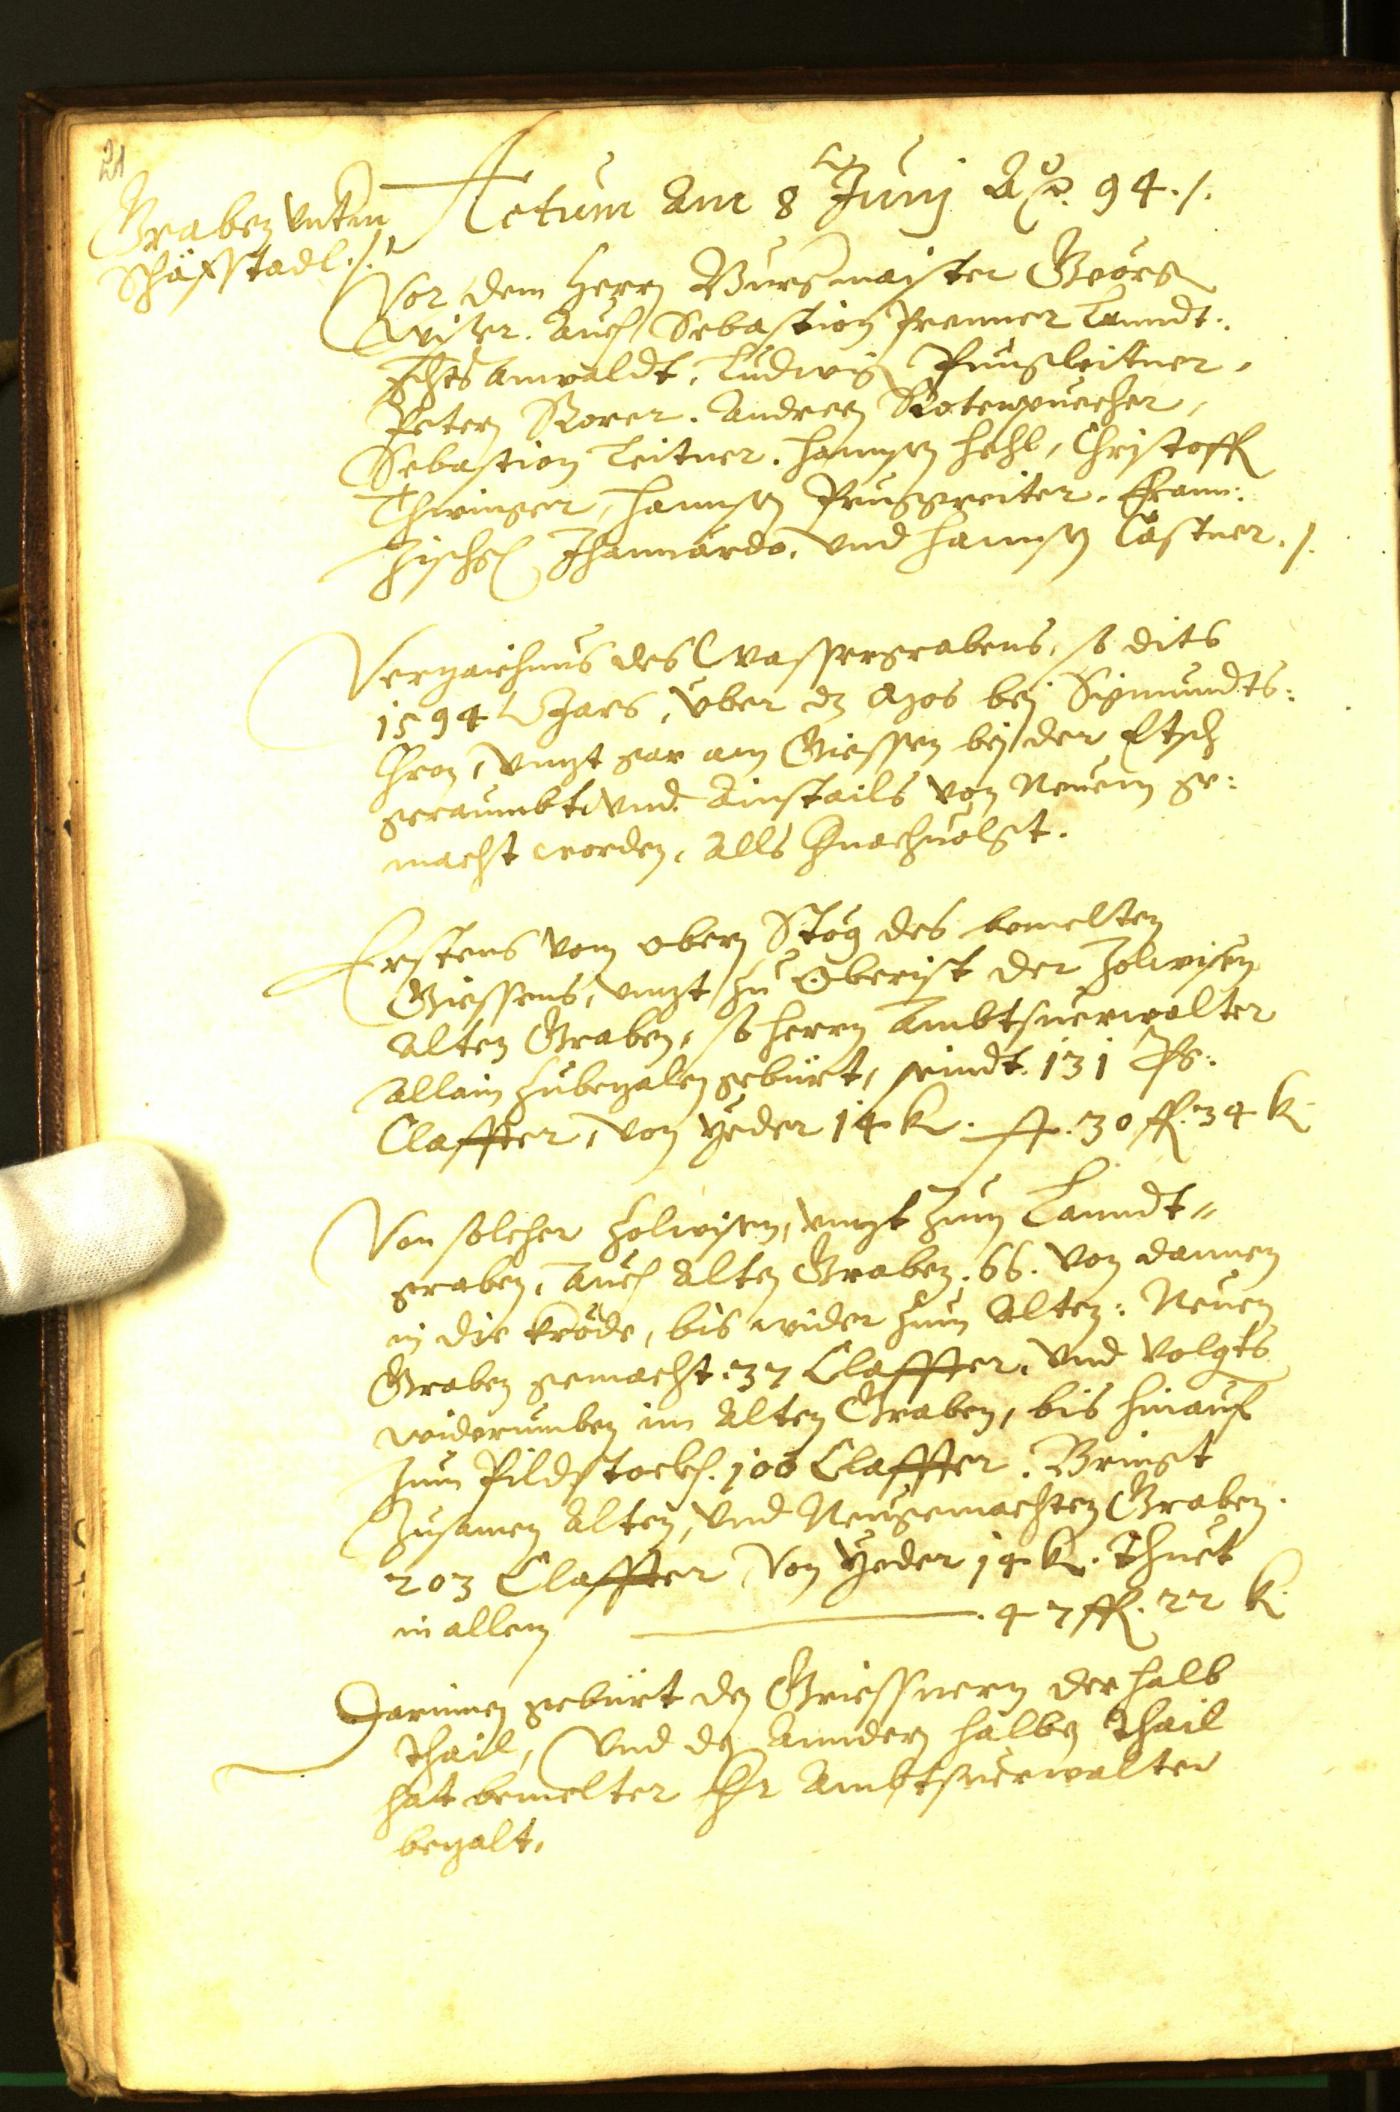 21
Graben vnterm
Schäfstadl ./.
Actum Am 8 Junj Ao. 94 ./.
Vor dem Herrn Burgmaister Geörg
Wiser. Auch Sebastian Prenner Lanndt:
Anwaldt, Ludwig Prugleitner,
Petern Rorer. Andreen Rotenpuecher,
Sebastian Leitner. Hannsen Hehl, Christoff
Thwinger, Hannsen Pruggreiter. Frann:
zischg Jhannardo, vnd Hannsen Castner ./.
Verzaichnus des Wassergrabens, so dits
1594 Jars, vber dz Mos bej Sigmundts:
Cron, vnngt gar am Giessen bej der Etsch
geraumbt, vnd Ainstails von Neuem ge:
macht worden, Alls Hernachuolgt.
Erstens vom obern Stög des bemelten
Giessens, vnngt zu Oberist der Zolwisen
Alten Graben, so Herrn Ambtsuerwalter
Allain zubezalen gebürt, seindt 131 Ps:
Claffter, von yeder 14 k. ft. 30 fl. 34 k
Von solcher Zolwisen, vnngt zum Lanndt"
graben, Auch Alten Graben. 66. Von dannen
in die kröde, bis wider zum Alten: Neuen
Graben gemacht. 37 Claffter, vnd volgts
widerumben im Alten Graben, bis hinauf
zum Pildstockh. 100 Claffter. Bringt
Zusamen Alten, vnd Neugemachten Graben.
203 Claffter von yeder 14 k. Thuet
in allem . 47 fl. 22 k
Darinnen gebürt den Griessnern der halb
Thail, vnd den Anndern halben Thail
hat bemelter Hr Ambtsuerwalter
bezalt.